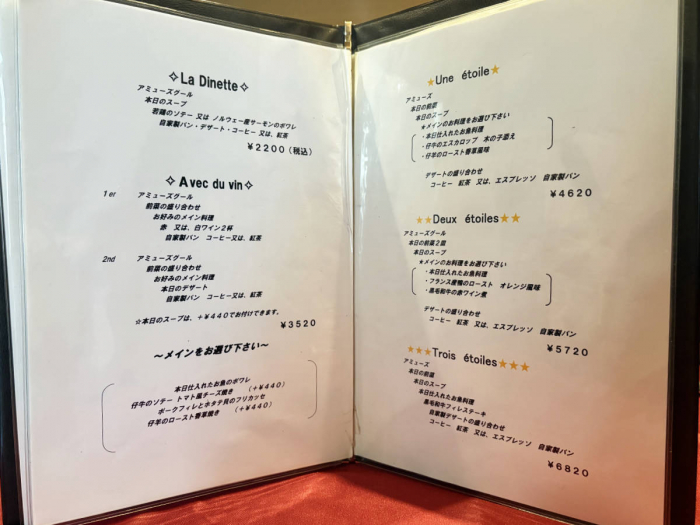 ✧La Dinette✧
アミューズグール
本日のスープ
若鶏のソテー 又は ノルウェー産サーモンのポワレ
自家製パン・デザート・コーヒー 又は、紅茶
￥2200（税込）
✧Avec du vin✧
1er アミューズグール
前菜の盛り合わせ
お好みのメイン料理
赤 又は、白ワイン2杯
自家製パン コーヒー又は、紅茶
2nd アミューズグール
前菜の盛り合わせ
お好みのメイン料理
本日のデザート
自家製パン コーヒー又は、紅茶
☆本日のスープは、+￥440でお付けできます。
￥3520
～メインをお選び下さい～
本日仕入れたお魚のポワレ
仔牛のソテー トマト風チーズ焼き （+￥440）
ポークフィレとホタテ貝のフリカッセ
仔羊のロースト香草焼き （+￥440）
★Une étoile★
アミューズ
本日の前菜
本日のスープ
★メインのお料理をお選び下さい
・本日仕入れたお魚料理
・仔牛のエスカロップ 木の子添え
・仔羊のロースト香草風味
デザートの盛り合わせ
コーヒー 紅茶 又は、エスプレッソ 自家製パン
￥4620
★★Deux étoiles★★
アミューズグール
本日の前菜2皿
本日のスープ
★メインのお料理をお選び下さい
・本日仕入れたお魚料理
・フランス産鴨のロースト オレンジ風味
・黒毛和牛の赤ワイン煮
デザートの盛り合わせ
コーヒー 紅茶 又は、エスプレッソ 自家製パン
￥5720
★★★Trois étoiles★★★
アミューズ
本日の前菜
本日のスープ
本日仕入れたお魚料理
黒毛和牛フィレステーキ
自家製デザートの盛り合わせ
コーヒー 紅茶 又は、エスプレッソ 自家製パン
￥6820